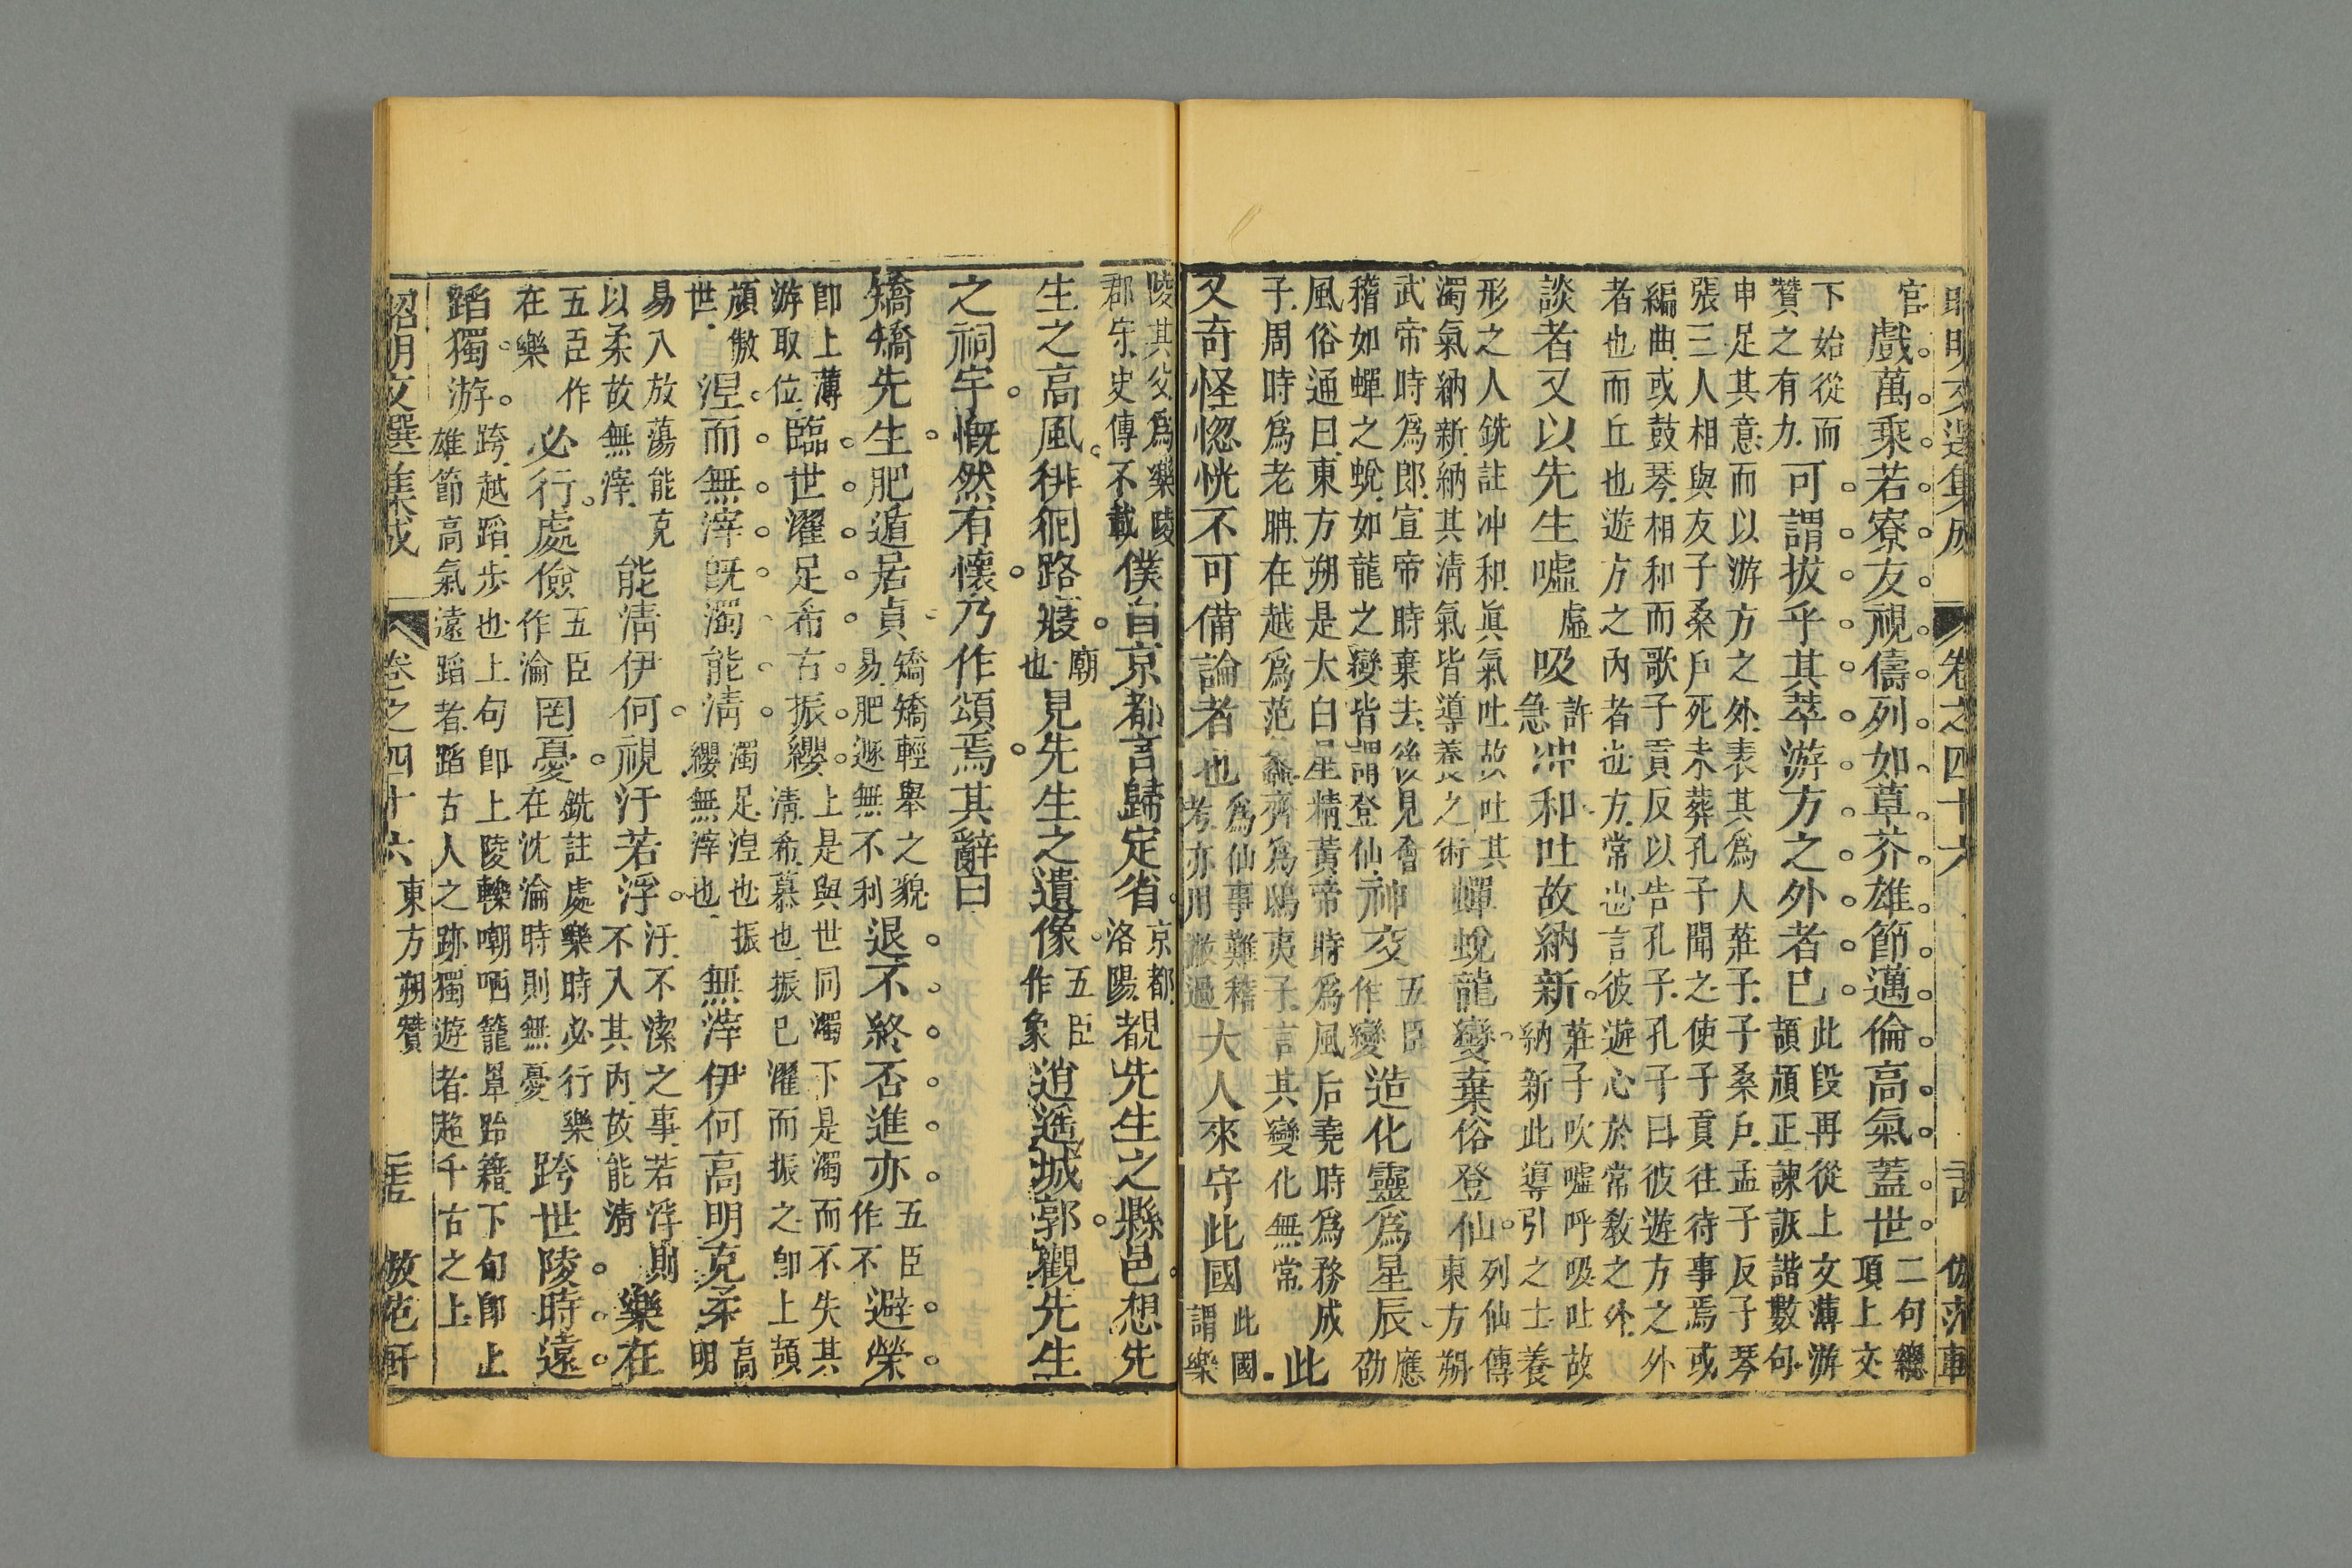 昭明文選集成 卷之四十六
官戲萬乘若寮友視儔列如草芥雄節邁倫高氣蓋世二句總頂上文
下始從而贊之有力可謂拔乎其萃游方之外者已此段再從上文薄游頡頏正諫詼諧數句
申足其意而以游方之外表其爲人莊子子桑戶孟子反子琴張三人相與友子桑戶死未葬孔子聞之使子貢往待事焉或
編曲或鼓琴相和而歌子貢反以告孔子孔子曰彼遊方之外者也而丘也遊方之內者也方常也言彼遊心於常教之外
談者又以先生噓虛吸許急冲和吐故納新莊子吹噓呼吸吐故納新此導引之士養
形之人銑註冲和眞氣吐故吐其濁氣納新納其清氣皆導養之術蟬蛻龍變棄俗登仙列仙傳東方朔
武帝時爲郎宣帝時棄去後見會稽如蟬之蛻如龍之變皆謂登仙神交五臣作變造化靈爲星辰應劭
風俗通曰東方朔是太白星精黃帝時爲風后堯時爲務成子周時爲老聃在越爲范蠡齊爲鴟夷子言其變化無常此
又奇怪惚恍不可備論者也爲仙事難稽考亦用撇過大人來守此國此國謂樂
陵其父爲樂陵郡守史傳不載僕自京都言歸定省京都洛陽覩先生之縣邑想先
生之高風徘徊路寢廟也見先生之遺像五臣作象逍遙城郭觀先生
之祠宇慨然有懷乃作頌焉其辭曰
矯矯先生肥遁居貞矯矯輕舉之貌易肥遯無不利退不終否進亦五臣作不避榮
卽上薄游取位臨世濯足希古振纓上是與世同濁下是濁而不失其清希慕也振已濯而振之卽上頡
頏傲世涅而無滓旣濁能清濁足涅也振纓無滓也無滓伊何高明克柔高明
易入放蕩能克以柔故無滓能清伊何視汙若浮汙不潔之事若浮則不入其內故能清樂在
五臣作在樂必行處儉五臣作淪罔憂銑註處樂時必行樂在沈淪時則無憂跨世陵時遠
蹈獨游跨越蹈步也上句卽上陵轢嘲哂籠罩跆籍下句卽上雄節高氣遠蹈者蹈古人之跡獨遊者超千古之上
昭明文選集成 卷之四十六 東方朔贊 倣范軒